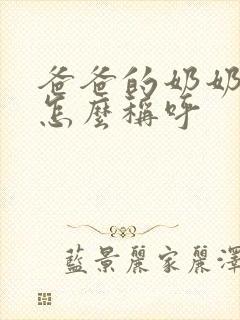 爸爸的奶奶
怎麼稱呼
藍景麗家麗澤